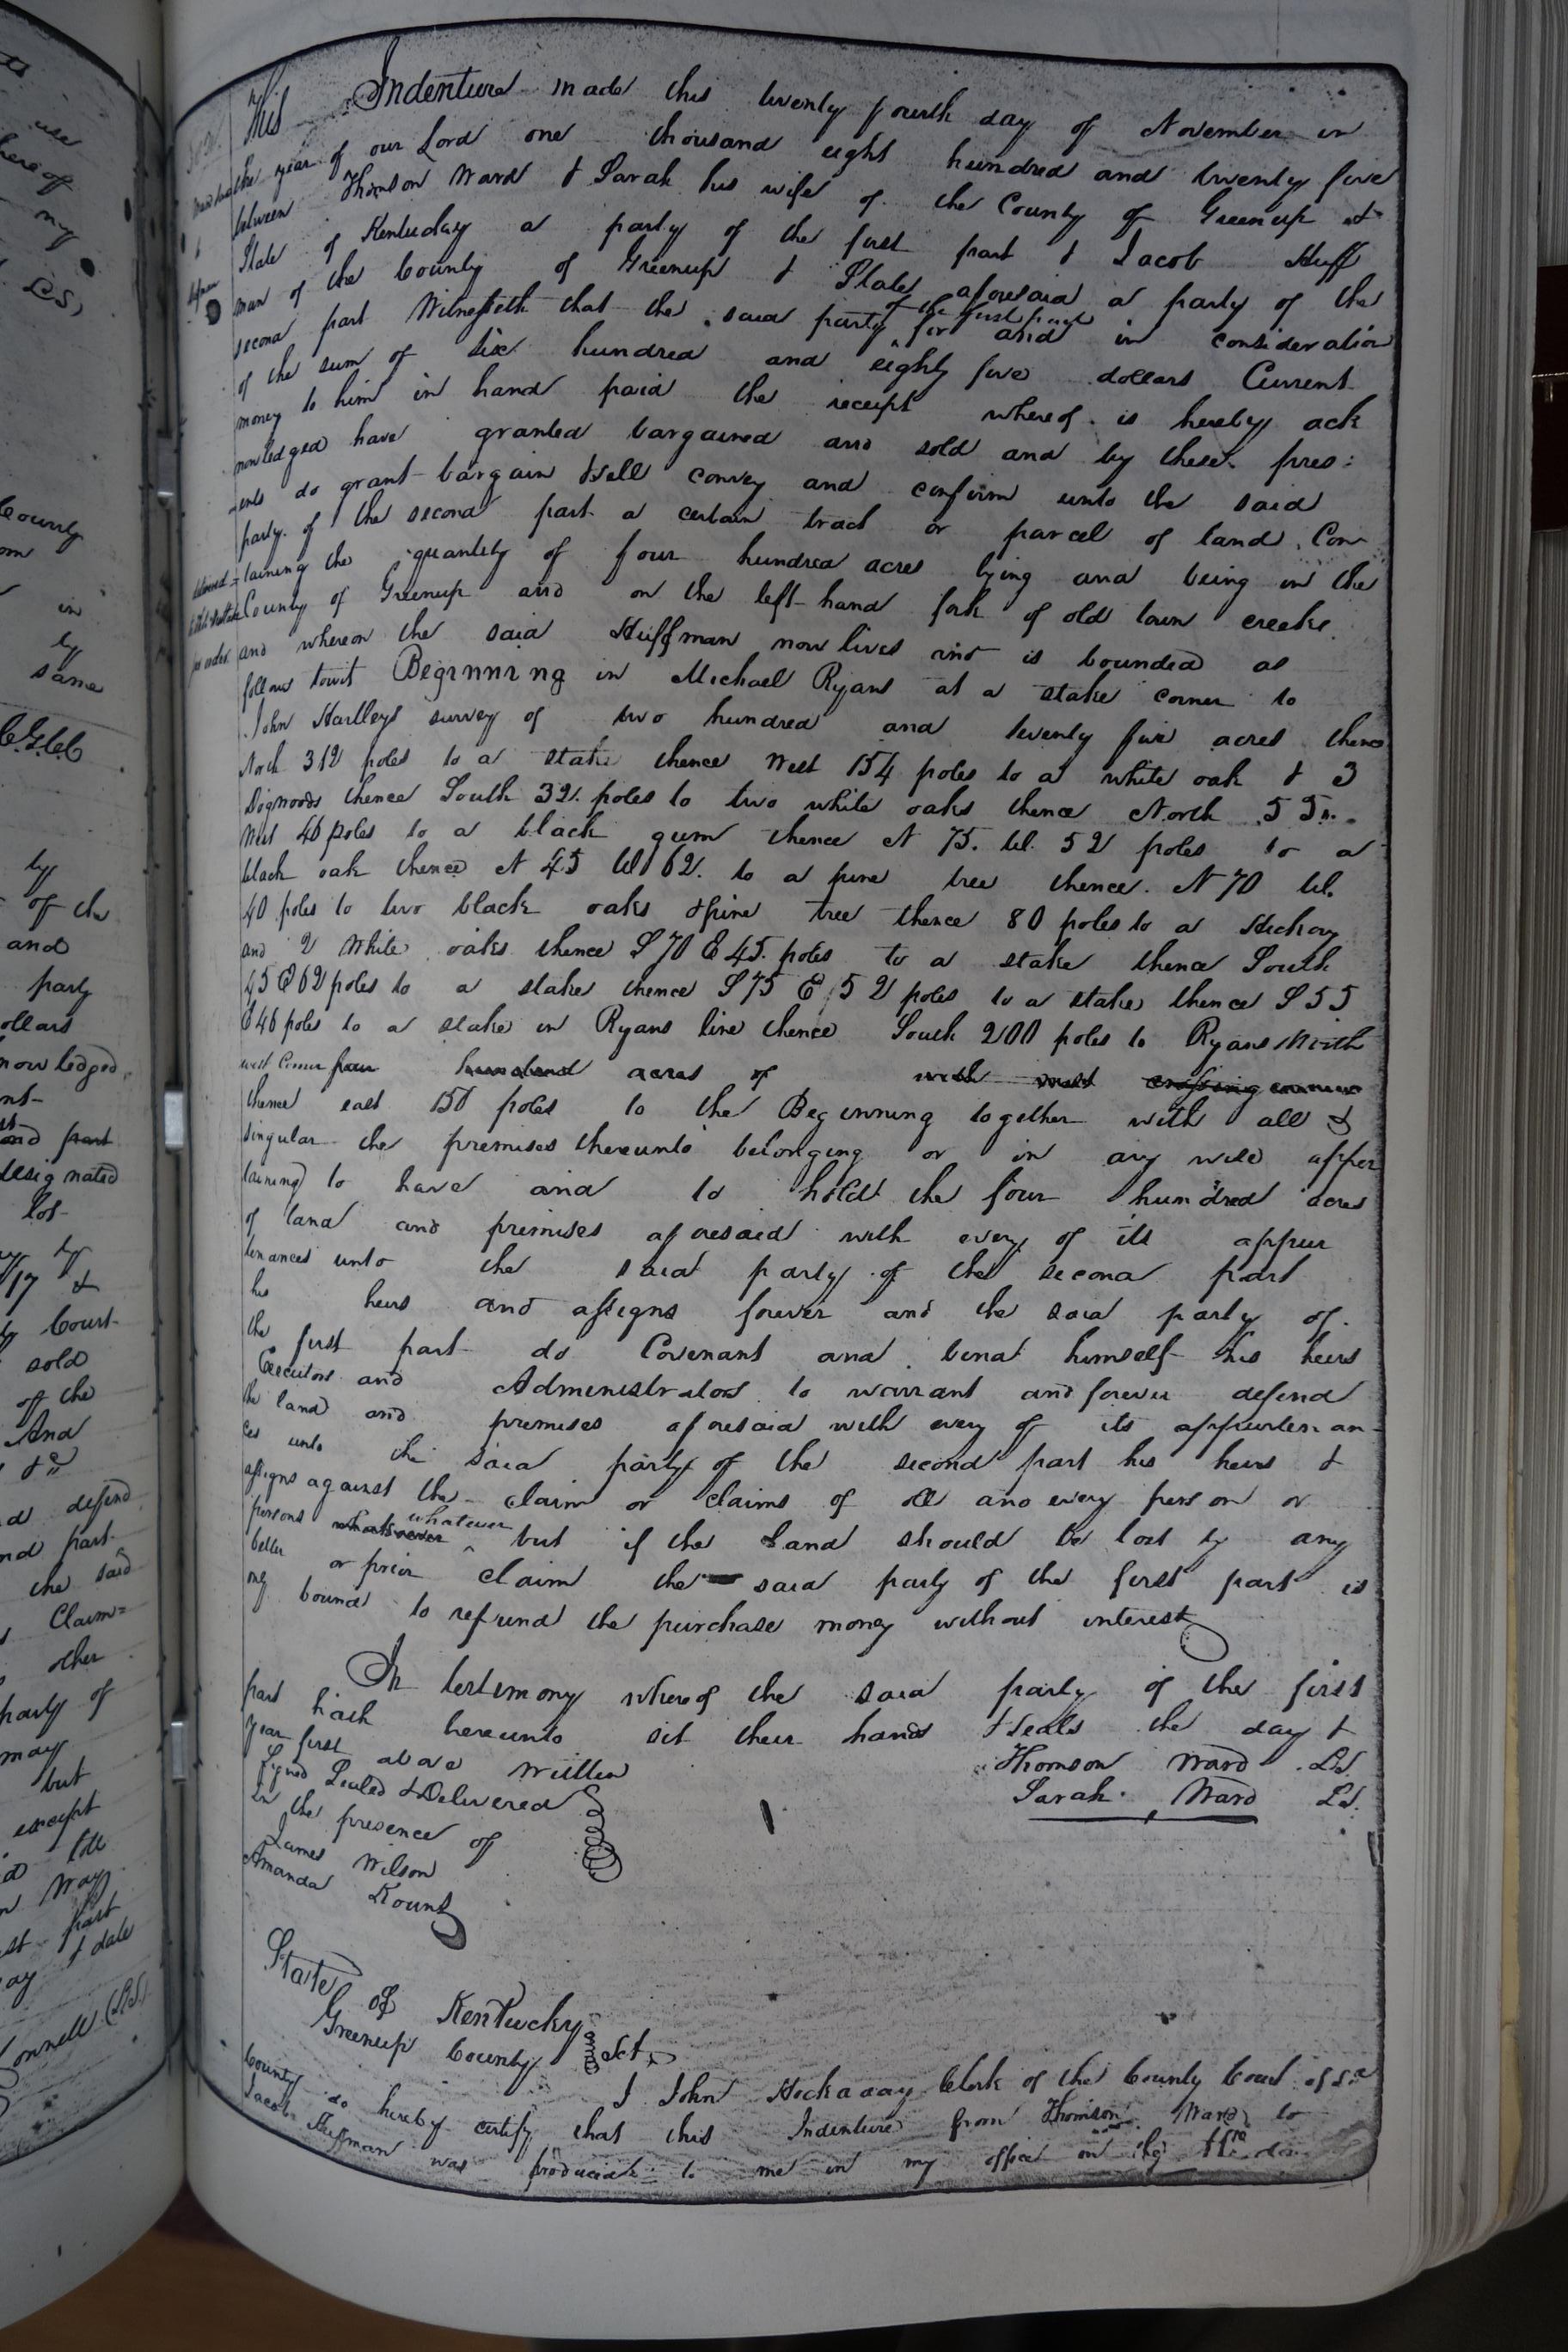 use
here of
my
LS)
County
in
by
same
C.G.C.C.
by
of the
and
party
ollars
now ledged
nt-
and part
desig nated
Lot-
by
17 &
Court-
sold
of the
And
d defend
nd part
the said
Claim=
other
party of
may
but
except
n Way
st part
ay & date
onnell (LS)
This Indenture made this twenty fourth day of November in
the year of our Lord one thousand eight hundred and twenty five
between Thomson Ward & Sarah his wife of the County of Greenup &
State of Kentuckay a party of the first part & Jacob Huff
man of the County of Greenup & State aforesaid a party of the
second part Witnesseth that the said party of the first part for and in consideration
of the sum of six hundred and eighty five dollars Current
money to him in hand paid the receipt whereof is hereby ack
nowledged have granted bargained and sold and by these pres:
ents do grant bargain & sell convey and confirm unto the said
party of the second part a certain tract or parcel of land Con
taining the quantity of four hundred acres lying and being in the
County of Greenup and on the left hand fork of old town creeke
and whereon the said Huffman now lives and is bounded as
follows towit Beginning in Michael Ryans at a stake corner to
John Hartleys survey of two hundred and seventy five acres thence
North 312 poles to a stake thence West 154 poles to a white oak & 3
Dogwoods thence South 32 poles to two white oaks thence North 55
West 46 poles to a black gum thence N 75. W. 52 poles to a
black oak thence N 45 W 62. to a pine tree thence N 70 W.
40 poles to two black oaks & pine tree thence 80 poles to a Hickory
and 2 White oaks thence S 70 E 45 poles to a stake thence South
45 E 62 poles to a stake thence S 75 E 52 poles to a stake thence S 55
E 46 poles to a stake in Ryans line thence South 200 poles to Ryans North
west Corner four hundred acres of with west crossing
thence east 150 poles to the Beginning together with all &
singular the premises thereunto belonging or in any wise apper
taining to have and to hold the four hundred acres
of land and premises aforesaid with every of its appur
tenances unto the said party of the second part
his heirs and assigns forever and the said party of
the first part do Covenant and bind himself his heirs
Executors and Administrators to warrant and forever defend
the land and premises aforesaid with every of its appurten an-
ces unto the said party of the second part his heirs &
assigns against the claim or claims of all and every person or
persons whatsoever whatever but if the Land should be lost by any
better or prior claim the said party of the first part is
ony bound to refund the purchase money without interest
In testimony whereof the said party of the first
part hath hereunto set their hands & seals the day &
year first above written
Thomson Ward LS.
Signed Sealed & Delivered
Sarah Ward LS.
in the presence of
James Wilson
Amanda Kount
State of Kentucky
Greenup County Sct
I John Hockaday Clerk of the County Court of sd
County do hereby certify that this Indenture from Thomson Ward to
Jacob Huffman was produced to me in my office on the